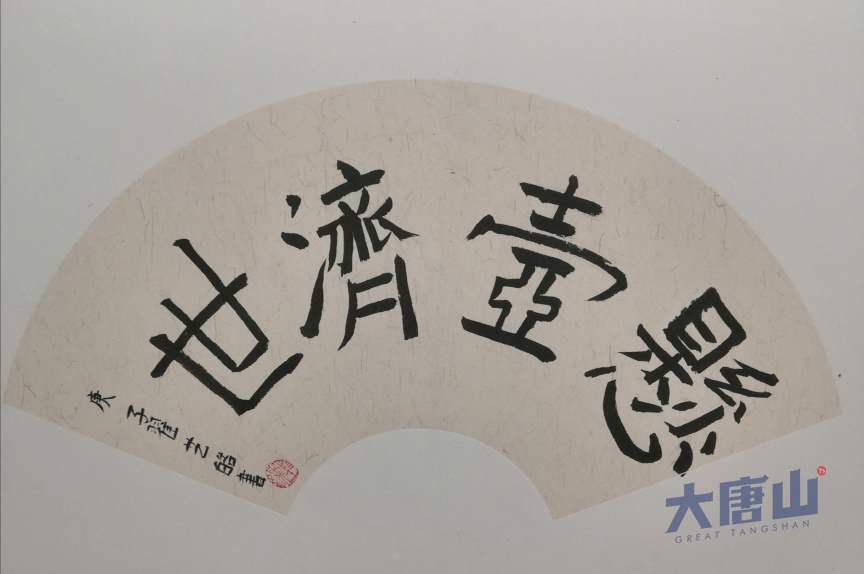 懸壺濟世
庚子翟艺能書
大唐山
GREAT TANGSHAN